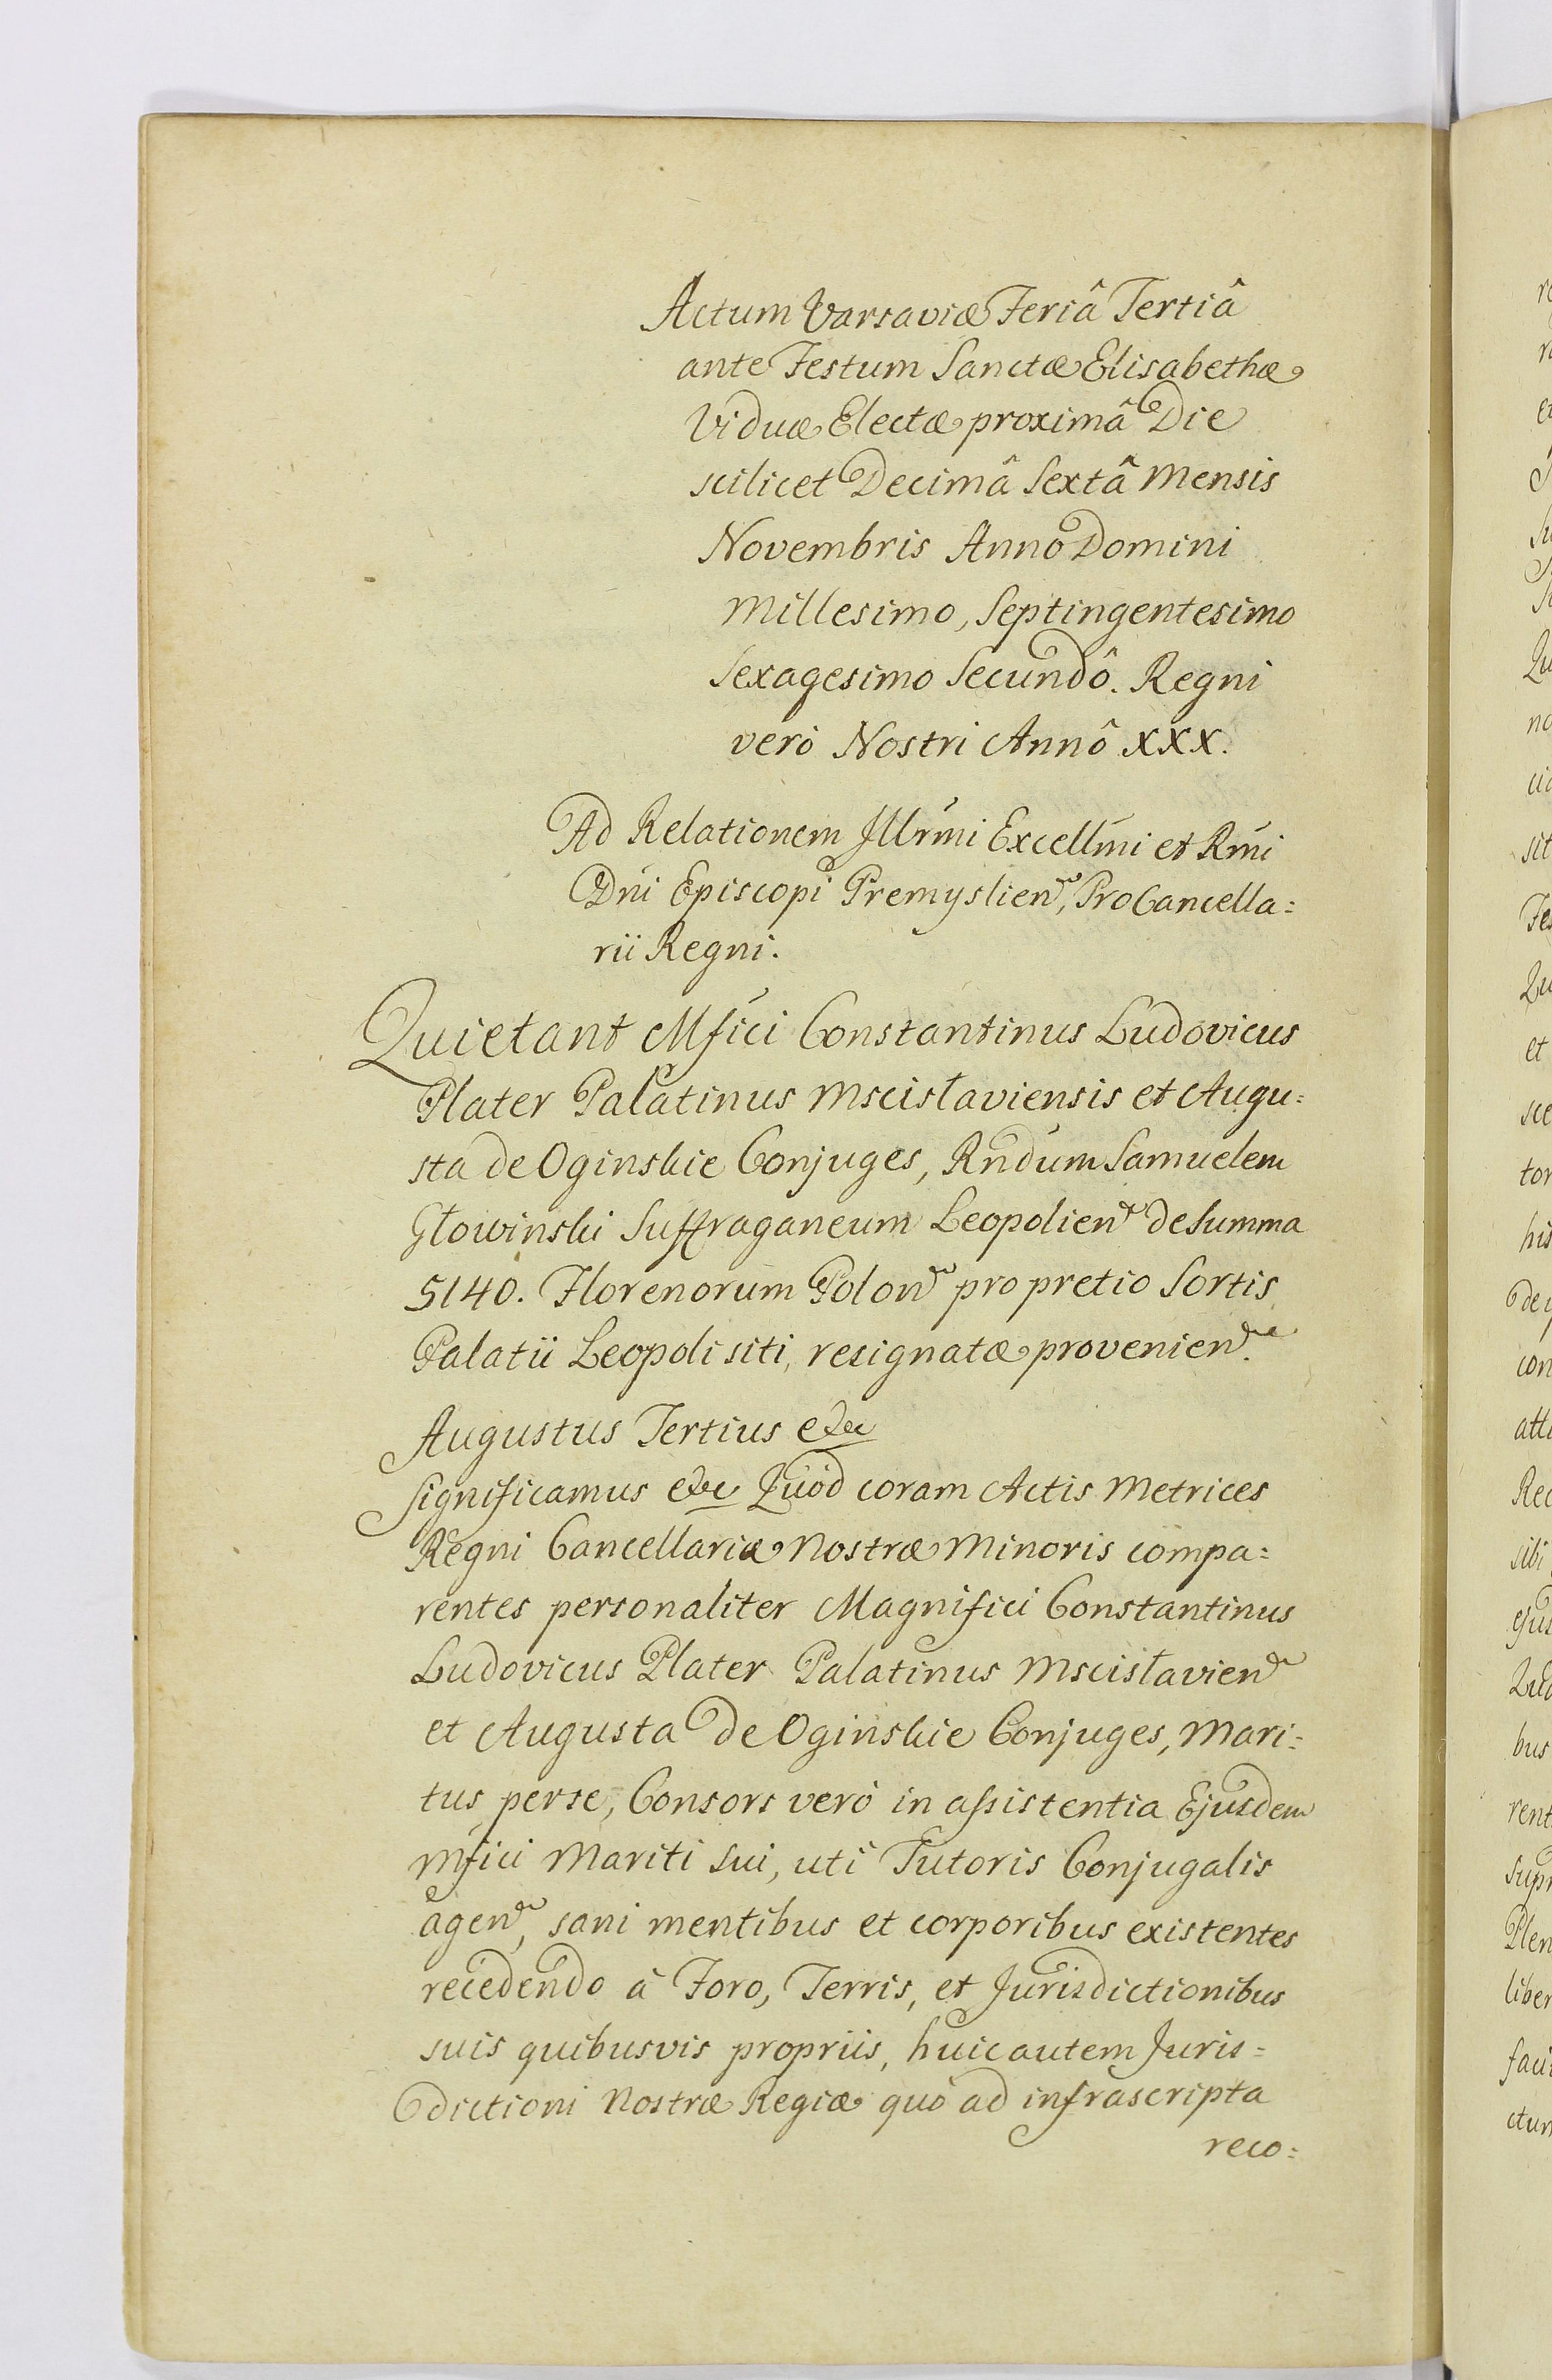 Actum Varsaviæ Feriâ Tertiâ
ante Festum Sanctæ Elisabethæ
Viduæ Electæ proximâ Die
scilicet Decimâ Sextâ Mensis
Novembris Anno Domini
Millesimo, Septingentesimo
Sexagesimo Secundô. Regni
verò Nostri Annô XXX.
Ad Relationem Illrmi Excellmi et Rmi
Dni Episcopi Premyslien, ProCancella=
rii Regni.
Quietant Mfici Constantinus Ludovicus
Plater Palatinus Mscisłaviensis et Augu=
sta de Oginskie Conjuges, Rndum Samuelem
Głowinski Suffraganeum Leopolien de Summa
5140. Florenorum Polon pro pretio Sortis
Palatii Leopoli siti, resignatæ provenien.
Augustus Tertius etc
Significamus etc Quòd coram Actis Metrices
Regni Cancellariæ Nostræ Minoris compa=
rentes personaliter Magnifici Constantinus
Ludovicus Plater Palatinus Mscisłavien
et Augusta de Oginskie Conjuges, Mari=
tus per se, Consors verò in assistentia Ejusdem
Mfici Mariti Sui, uti Tutoris Conjugalis
agen, sani mentibus et corporibus existentes
recedendo à Foro, Terris, et Jurisdictionibus
suis quibusvis propriis, huic autem Juris=
dictioni Nostræ Regiæ quò ad infrascripta
reco=